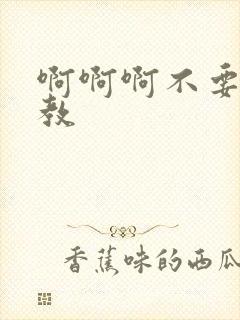 啊啊啊不要
教
香蕉味的西瓜